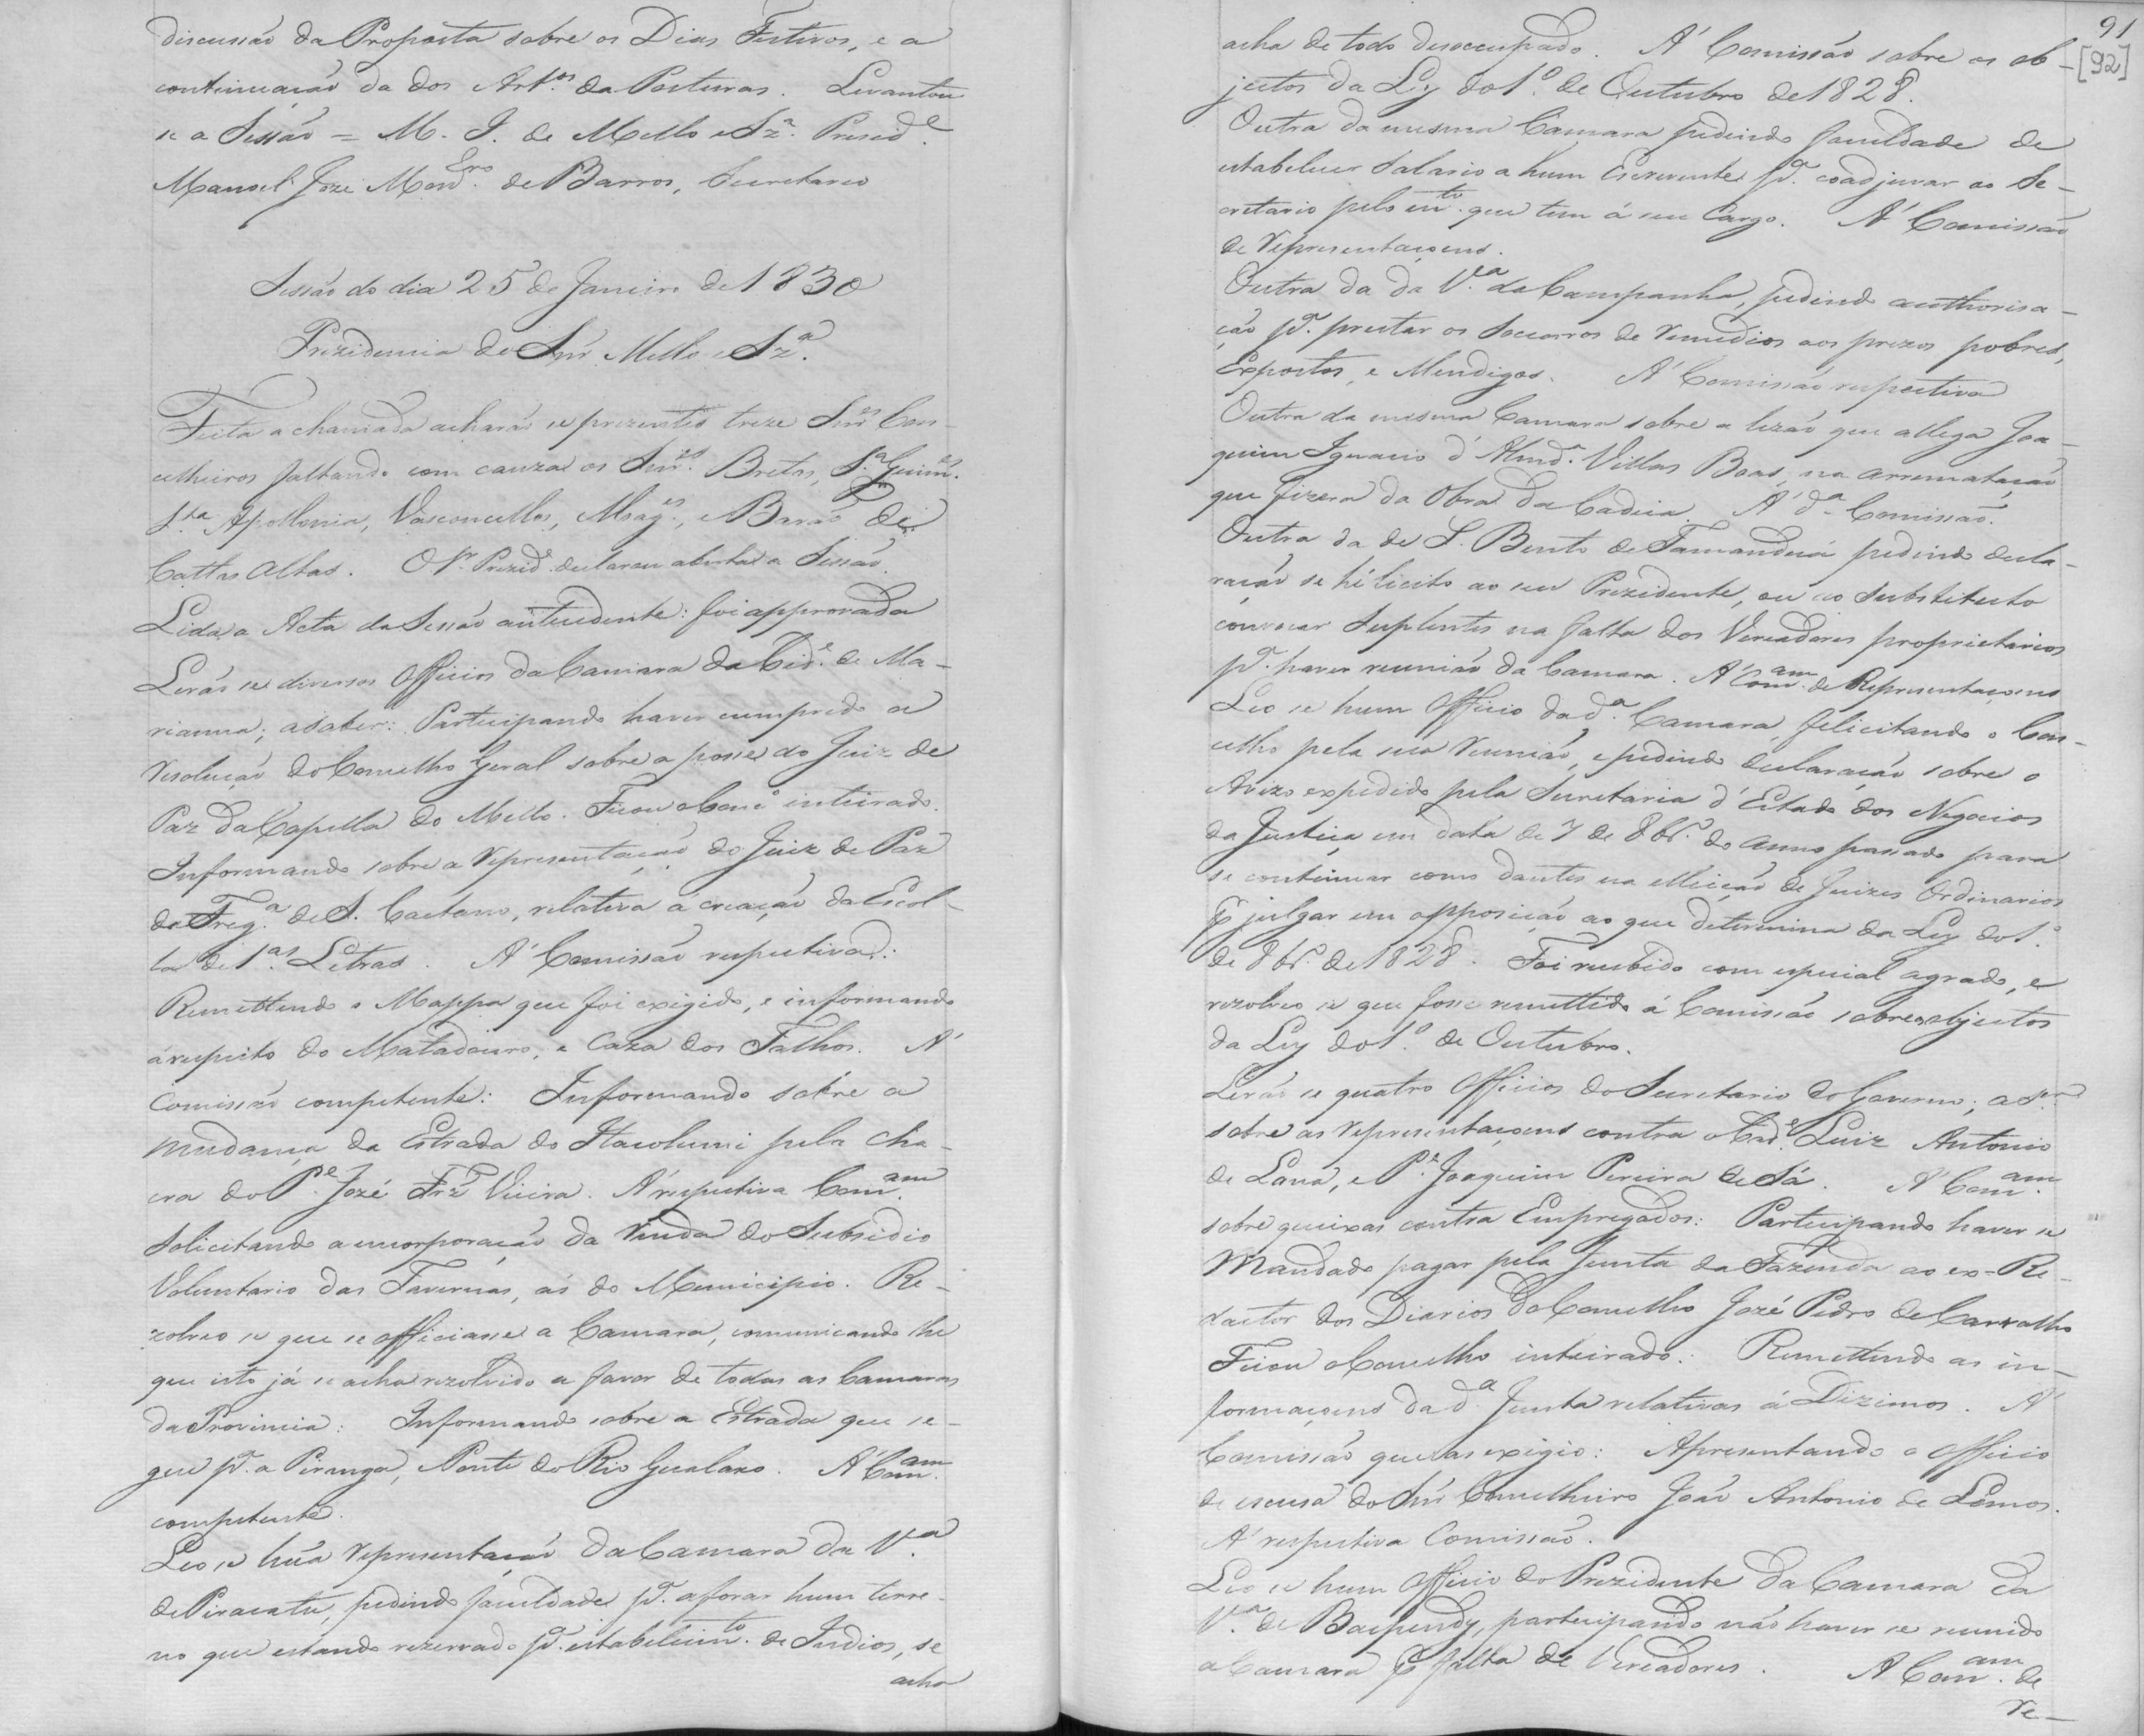 discussão da Proposta sobre os Dias Festivos, e a
continuação da dos Art.os da Posturas. Levantou
se a Sessão = M. I. de Mello e Sz.a Presid.e
Manoel Joze Mont.ro de Barros, Secretario
Sessão do dia 25 de Janeiro de 1830
Prezidencia do Snr Mello e Sz.a
Feita a chamada acharão se prezentes treze Snr.es Con-
celheiros faltando com cauza os Snr.es Bretas, S.a Guim.es
S.ta Apollonia, Vasconcellos, Mag.es, e Barão de
Cattas Altas. O Sr. Prezid.e declarou aberta a Sessão.
Lida a Acta da Sessão antecedente: foi approvada
Lerão se diversos Officios da Camara da Cid.e de Ma-
rianna; a saber: Participando haver cumprido a
Resolução do Concelho Geral sobre a posse do Juiz de
Paz da Capella do Mello. Ficou o Conc.o inteirado.
Informando sobre a Representação do Juiz de Paz
da Freg.a de S. Caetano, relativa á creação da Escol-
la de 1.as Letras. Á Comissão respectiva:
Remettendo o Mappa que foi exigido, e informando
á respeito do Matadouro, e Caza dos Talhos. Á
Comissão competente: Informando sobre a
mudança da Estrada do Itacolumi pela cha-
cra do P.e Jozé Frz Vieira. Á respectiva Com.am
Solicitando a encorporação da Renda do Subsidio
Voluntario das Tavernas, ás do Municipio. Re-
zolveo se que se officiasse a Camara, comunicando lhe
que isto já se acha rezolvido a favor de todas as Camaras
da Provincia: Informando sobre a Estrada que se-
gue p.a a Piranga, e Ponte do Rio Gualaxo. Á Com.am
competente.
Leo se hũa representação da Camara da V.a
de Piracatú, pedindo faculdade p.a aforar hum terre-
no que estando rezervado p.a estabelecim.to de Indios, se
acha
91
[92]
acha de todo desoccupado. Á Comissão sobre os ob-
jectos da Ley do 1.o de Outubro de 1828.
Outra da mesma Camara pedindo faculdade de
estabelecer Salario a hum Escrevente p.a coadjuvar ao Se-
cretario pelo m.to que tem á seu Cargo. Á Comissão
de Representaçoens.
Outra da da V.a da Campanha, pedindo authorisa-
ção p.a prestar os Soccorros de remedios aos prezos pobres,
Expostos, e Mendigos. Á Comissão respectiva
Outra da mesma Camara sobre a lezão que allega Joa-
quim Ignacio d'Almd.a Villas Boas, na arrematação
que fizera da Obra da Cadeia. Á d.a Comissão.
Outra da de S. Bento de Tamanduá pedindo decla-
ração se hé licito ao seu Prezidente, ou ao Substituto
convocar Suplentes na falta dos Vereadores proprietarios
p.a haver reunião da Camara. Á Com.am de Representaçoens
Leo se hum Officio da d.a Camara, felicitando o Con-
celho pela sua reunião, e pedindo declaração sobre o
Avizo expedido pela Secretaria d'Estado dos Negocios
da Justiça em data de 7 de 8br.o do anno passado para
se continuar como dantes na elleição de Juizes Ordinarios
p julgar em opposição ao que determina da Ley do 1.o
de 8br.o de 1828. Foi recebido com especial agrado, e
rezolveo se que fosse remettido á Comissão sobre objectos
da Ley do 1.o de Outubro.
Lerão se quatro Officios do Secretario do Governo; a S.er
sobre as representaçoens contra o Cad.e Luiz Antonio
de Lana, e P.e Joaquim Pereira de Sá. Á Com.am
sobre queixas contra Empregados: Participando haver se
Mandado pagar pela Junta da Fazenda ao ex-Re-
dactor dos Diarios do Concelho Jozé Pedro de Carvalho
Ficou o Concelho inteirado: Remettendo as in-
formaçoens da d.a Junta relativas á Dizimos. Á
Comissão que as exigio: Apresentando o Officio
de escusa do Snr Concelheiro João Antonio de Lemos.
Á respectiva Comissão.
Leo se hum Officio do Prezidente da Camara da
V.a de Baependy, participando não haver se reunido
a Camara p falta de Vereadores. Á Com.am de
Re-